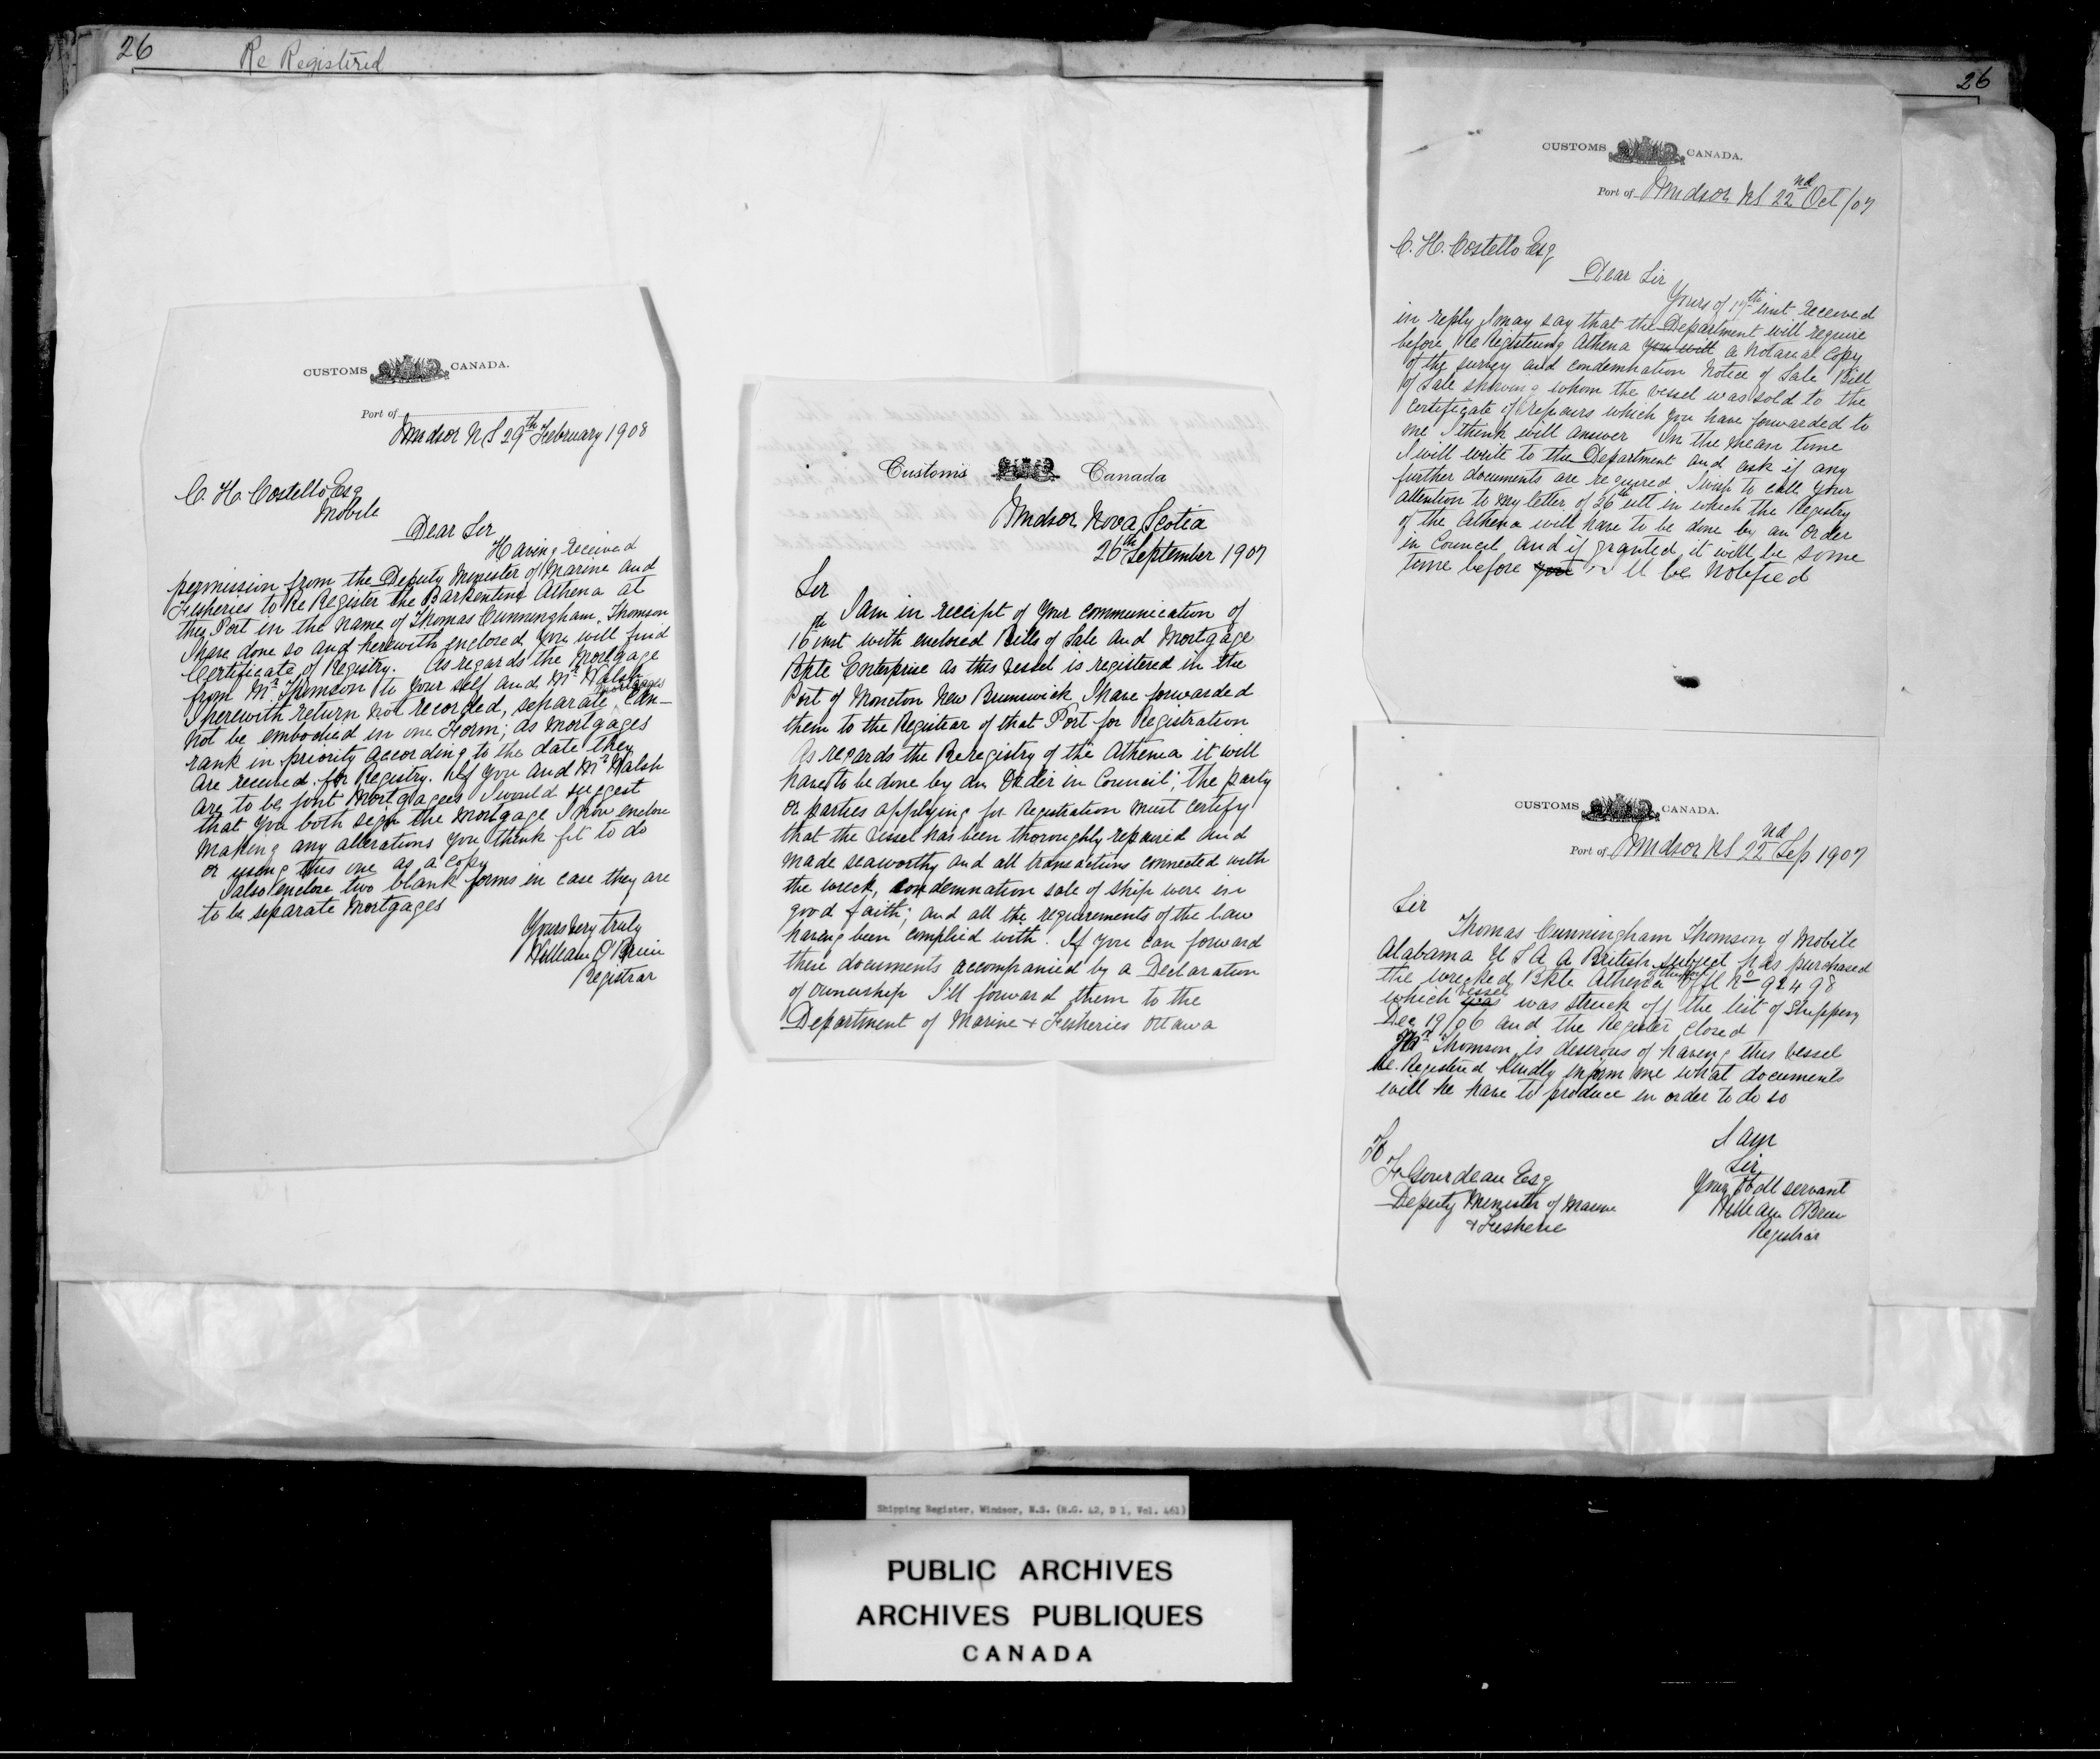 26
Re Registered
26
CUSTOMS CANADA.
Port of
Windsor N S 29th February 1908
C. H. Costello Esq
Mobile
Dear Sir
Having received
permission from the Deputy Minister of Marine and
Fisheries to Re Register the Barkentine Athena at
this Port in the name of Thomas Cunningham Thomson
I have done so and herewith enclosed you will find
Certificate of Registry. As regards the Mortgage
from Mr Thomson to your self and Mr Walsh
I herewith return not recorded, separate mortgages can-
not be embodied in one Form; as mortgages
rank in priority according to the date they
are received for Registry. If you and Mr Walsh
are to be joint Mortgagees I would suggest
that you both sign the mortgage I now enclose
making any alterations you think fit to do
or using this one as a copy
I also enclose two blank forms in case they are
to be separate Mortgages
Yours very truly
William O'Brien
Registrar
Customs Canada
Windsor Nova Scotia
26th September 1907
Sir
I am in receipt of your communication of
16th inst with enclosed Bills of Sale and Mortgage
Bkte Enterprise as this vessel is registered in the
Port of Moncton New Brunswick I have forwarded
them to the Registrar of that Port for Registration
As regards the Reregistry of the Athena it will
have to be done by an Order in Council; the party
or parties applying for Registration must certify
that the vessel has been thoroughly repaired and
made seaworthy and all transactions connected with
the wreck, condemnation sale of ship were in
good faith; and all the requirements of the law
having been complied with. If you can forward
these documents accompanied by a Declaration
of ownership I'll forward them to the
Department of Marine + Fisheries Ottawa
CUSTOMS CANADA.
Port of Windsor NS 22nd Oct/07
C. H. Costello Esq
Dear Sir
Yours of 17th inst received
in reply I may say that the Department will require
before Re Registering Athena you will a Notarial Copy
of the survey and condemnation Notice of Sale Bill
of Sale showing whom the vessel was sold to the
Certificate of repairs which you have forwarded to
me I think will answer In the mean time
I will write to the Department and ask if any
further documents are required I wish to call your
attention to my letter of 26th ult in which the Registry
of the Athena will have to be done by an Order
in Council and if granted it will be some
time before you will be notified
CUSTOMS CANADA.
Port of Windsor NS 22nd Sep 1907
Sir
Thomas Cunningham Thomson of Mobile
Alabama U S A a British subject has purchased
the wrecked Bkte Athena Offl No 92498
which vessel was was struck off the list of Shipping
Dec 19/06 and the Register closed
Mr Thomson is desirous of having this vessel
Re. Registered Kindly inform me what documents
will he have to produce in order to do so
I am
Sir
Your Obdt servant
William OBrien
Registrar
To
F. Gourdeau Esq
Deputy Minister of Marine
+ Fisherie
Shipping Register, Windsor, N.S. (R.G. 42, D 1, Vol. 461)
PUBLIC ARCHIVES
ARCHIVES PUBLIQUES
CANADA